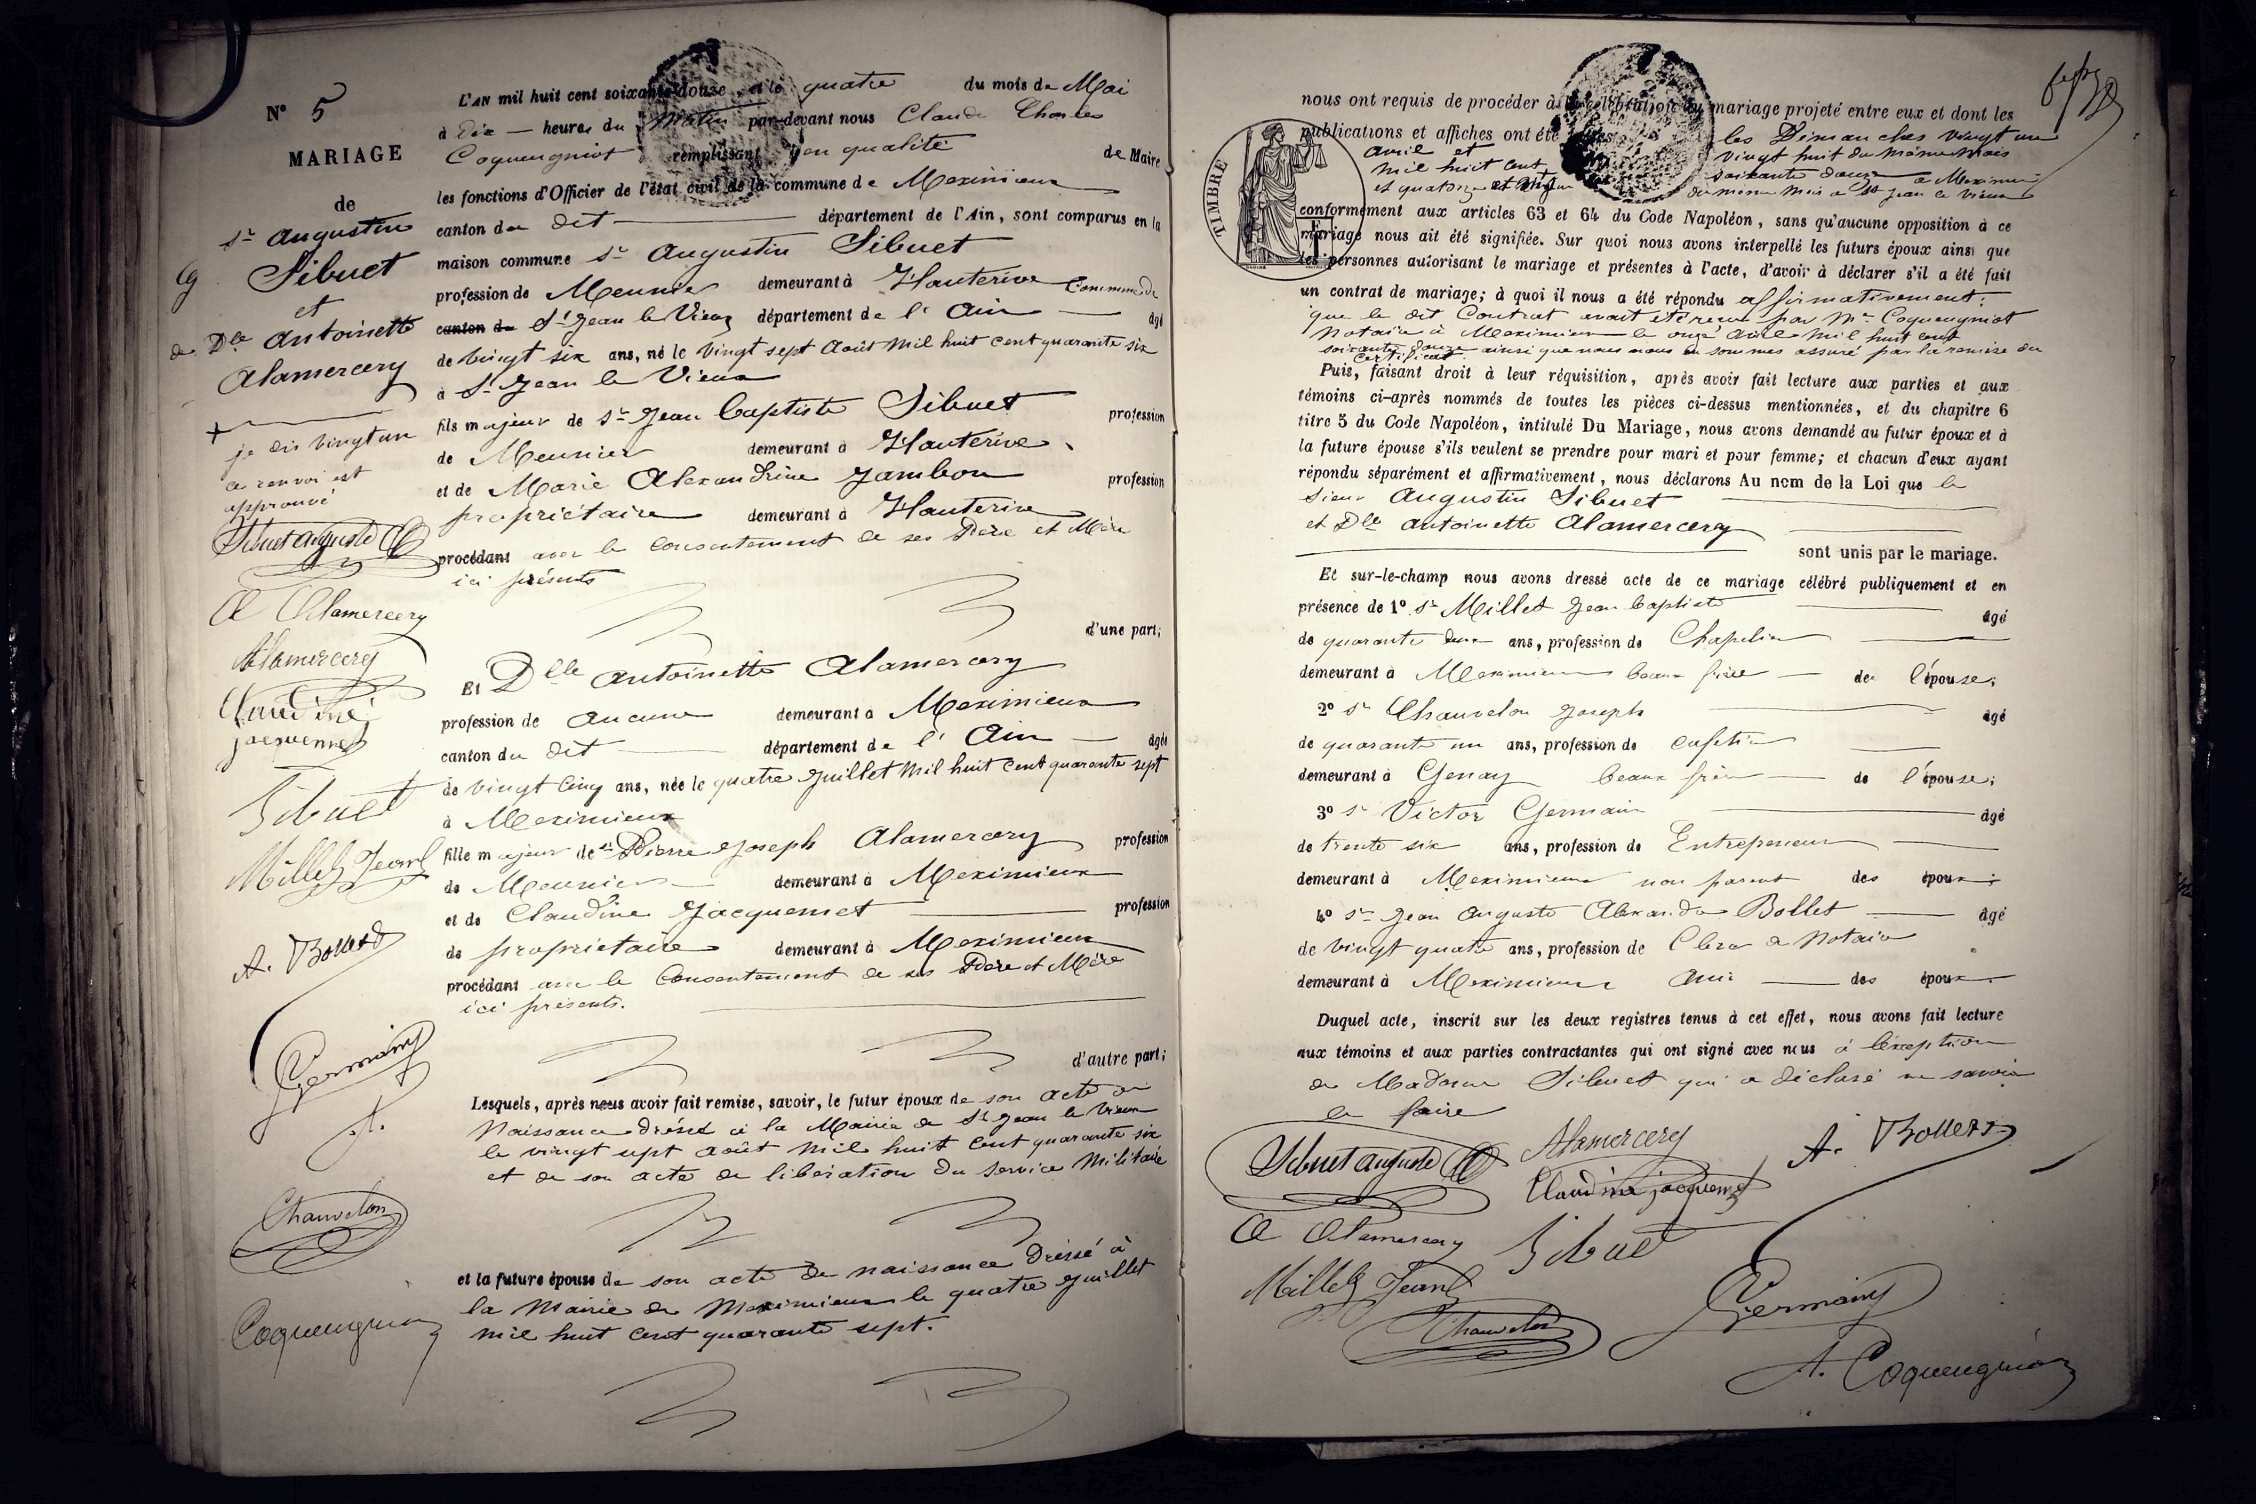 N° 5
MARIAGE
de
Sr Augustin
Sibuet
et
de Dlle Antoinette
Alamercery
je dis vingt un
ce renvoi est
approuvé
Sibuet auguste
A Alamercery
Alamercery
Claudine
jacquemet
Sibuet
Millet Jean
A. Bollet
Germain
Chauvelon
Coquengniot
L'AN mil huit cent soixante douze, et le quatre du mois de Mai
à Dix — heures du Matin par-devant nous Claude Charles
Coquengniot remplissant en qualité de Maire
les fonctions d'Officier de l'état civil de la commune de Meximieux
canton du dit département de l'Ain, sont comparus en la
maison commune Sr Augustin Sibuet
profession de Meunier demeurant à Hauterive Commune de
canton du St Jean le Vieux département de l'Ain agé
de vingt six ans, né le vingt sept Août mil huit cent quarante six
à St Jean le Vieux
fils majeur de Sr Jean Baptiste Sibuet profession
de Meunier demeurant à Hauterive
et de Marie Alexandrine Jambon profession
propriétaire demeurant à Hauterive
procédant avec le Consentement de ses Père et Mère
ici présents
d'une part;
Et Dlle Antoinette Alamercery
profession de aucune demeurant à Meximieux
canton du dit département de l'Ain agée
de vingt cinq ans, née le quatre Juillet mil huit cent quarante sept
à Meximieux
fille majeur de Sr Pierre Joseph Alamercery profession
de Meunier demeurant à Meximieux
et de Claudine Jacquemet profession
de propriétaire demeurant à Meximieux
procédant avec le Consentement de ses Père et Mère
ici présents.
d'autre part;
Lesquels, après nous avoir fait remise, savoir, le futur époux de son acte de
Naissance dressé à la Mairie de St Jean le Vieux
le vingt sept août mil huit cent quarante six
et de son acte de libération du service Militaire
et la future épouse de son acte de naissance dressé à
la Mairie de Meximieux le quatre Juillet
mil huit cent quarante sept.
nous ont requis de procéder à la célébration du mariage projeté entre eux et dont les
publications et affiches ont été les Dimanches vingt un
avril et vingt huit du même mois
mil huit cent soixante douze à Meximieux
et quatorze et vingt un du même mois à St Jean le Vieux
TIMBRE
conformément aux articles 63 et 64 du Code Napoléon, sans qu'aucune opposition à ce
mariage nous ait été signifiée. Sur quoi nous avons interpellé les futurs époux ainsi que
les personnes autorisant le mariage et présentes à l'acte, d'avoir à déclarer s'il a été fait
un contrat de mariage; à quoi il nous a été répondu affirmativement;
que le dit Contrat avait été reçu par Me Coquengniot
Notaire à Meximieux le onze avril mil huit cent
soixante douze ainsi que nous nous en sommes assuré par la remise du
certificat.
Puis, faisant droit à leur réquisition, après avoir fait lecture aux parties et aux
témoins ci-après nommés de toutes les pièces ci-dessus mentionnées, et du chapitre 6
titre 5 du Code Napoléon, intitulé Du Mariage, nous avons demandé au futur époux et à
la future épouse s'ils veulent se prendre pour mari et pour femme; et chacun d'eux ayant
répondu séparément et affirmativement, nous déclarons Au nom de la Loi que le
Sieur Augustin Sibuet
et Dlle Antoinette Alamercery
sont unis par le mariage.
Et sur-le-champ nous avons dressé acte de ce mariage célébré publiquement et en
présence de 1° Sr Millet Jean Baptiste agé
de quarante deux ans, profession de Chapelier
demeurant à Meximieux beau frère de l'épouse;
2° Sr Chauvelon Joseph agé
de quarante un ans, profession de cafetier
demeurant à Genay beau frère de l'épouse;
3° Sr Victor Germain agé
de trente six ans, profession de Entrepreneur
demeurant à Meximieux non parent des époux;
4° Sr Jean Auguste Alexandre Bollet agé
de vingt quatre ans, profession de Clerc de Notaire
demeurant à Meximieux ami des époux.
Duquel acte, inscrit sur les deux registres tenus à cet effet, nous avons fait lecture
aux témoins et aux parties contractantes qui ont signé avec nous à l'exception
de Madame Sibuet qui a déclaré ne savoir
le faire
Sibuet auguste Alamercery A. Bollet
Claudine jacquemet
A Alamercery Sibuet
Millet Jean Germain
Chauvelon
Coquengniot